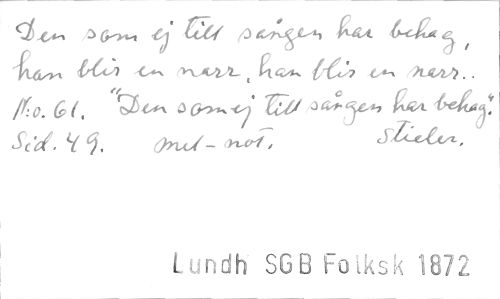 Den som ej till sången har behag,
han blir en narr, han blir en narr..
N:o. 61. "Den som ej till sången har behag."
Sid. 49. mel-not. Stieler.
Lundh SGB Folksk 1872